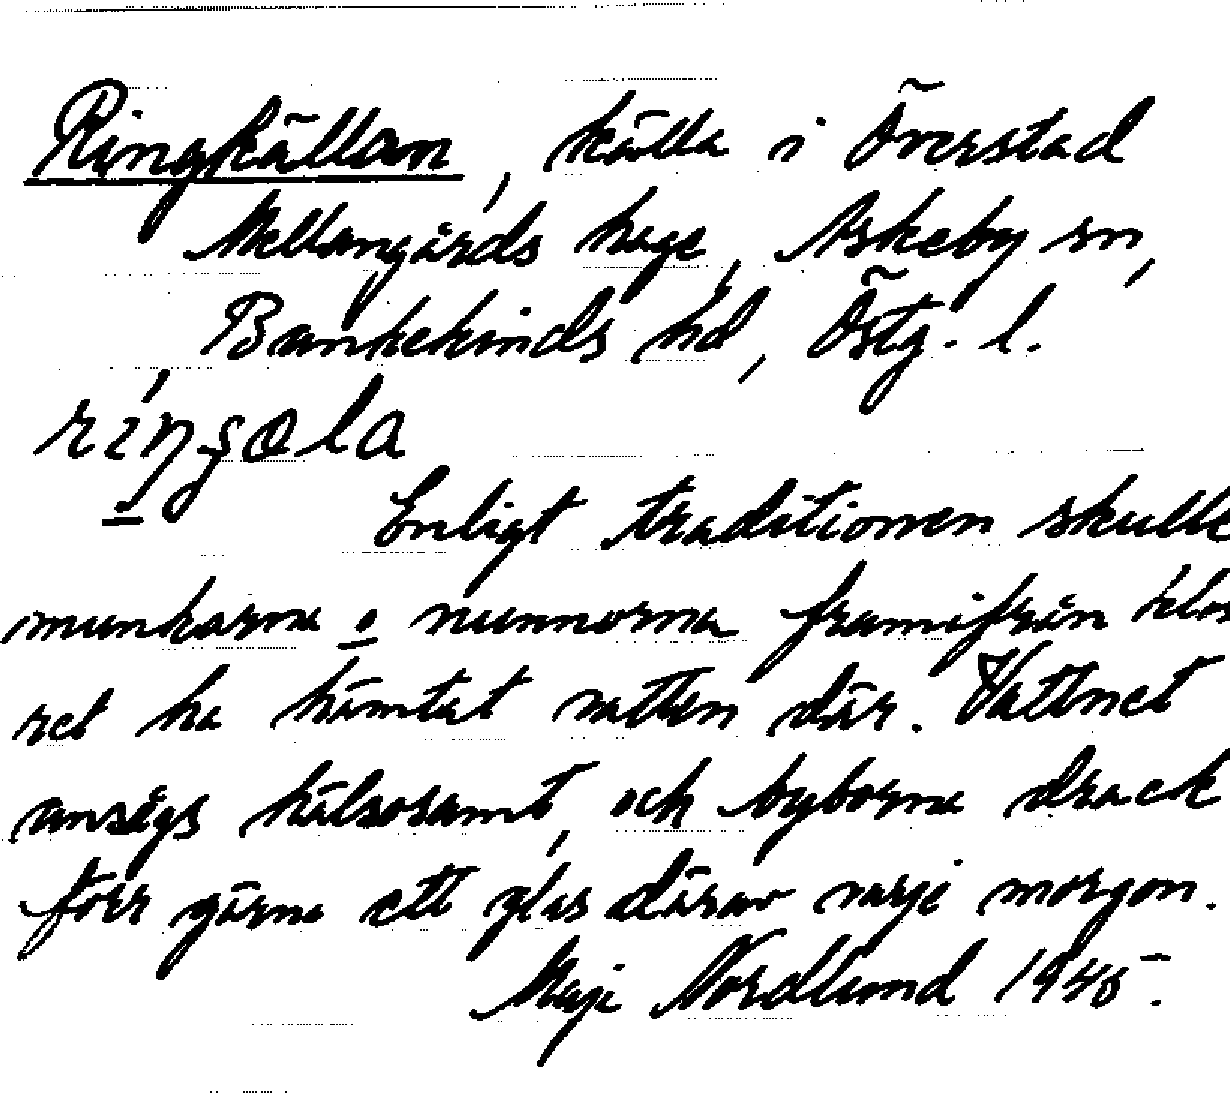 Ringkällan, källa i Överstad
Mellangårds hage, Askeby sn,
Bankekinds hd, Östg. l.
Enligt traditionen skulle
munkarna o nunnorna framifrån klos
ret ha hämtat vatten där. Vattnet
ansågs hälsosamt, och byborna drack
förr gärna ett glas därav varje morgon.
Maji Nordlund 1945.